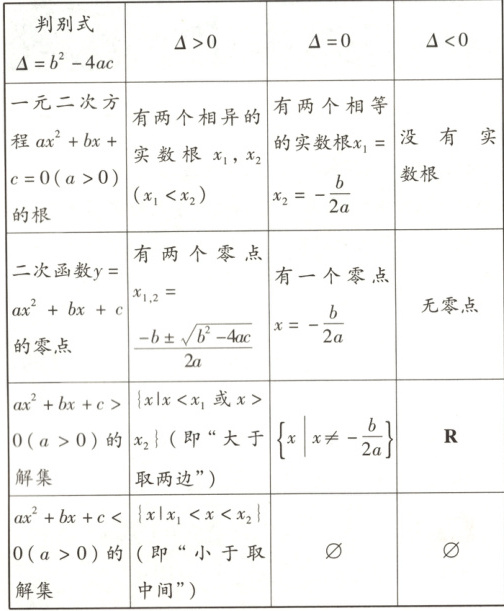 判别式
Δ=b²-4ac
Δ>0
Δ=0
Δ<0
一元二次方
程 ax²+bx+
c=0(a>0)
的根
有两个相异的
实数根 x₁,x₂
(x₁<x₂)
有两个相等
的实数根x₁=
x₂=-b/2a
没有实
数根
二次函数y=
ax²+bx+c
的零点
有两个零点
x₁,₂=
(-b±√(b²-4ac))/2a
有一个零点
x=-b/2a
无零点
ax²+bx+c>
0(a>0)的
解集
{x|x<x₁或x>
x₂}(即“大于
取两边”)
{x|x≠-b/2a}
R
ax²+bx+c<
0(a>0)的
解集
{x|x₁<x<x₂}
(即“小于取
中间”)
∅
∅